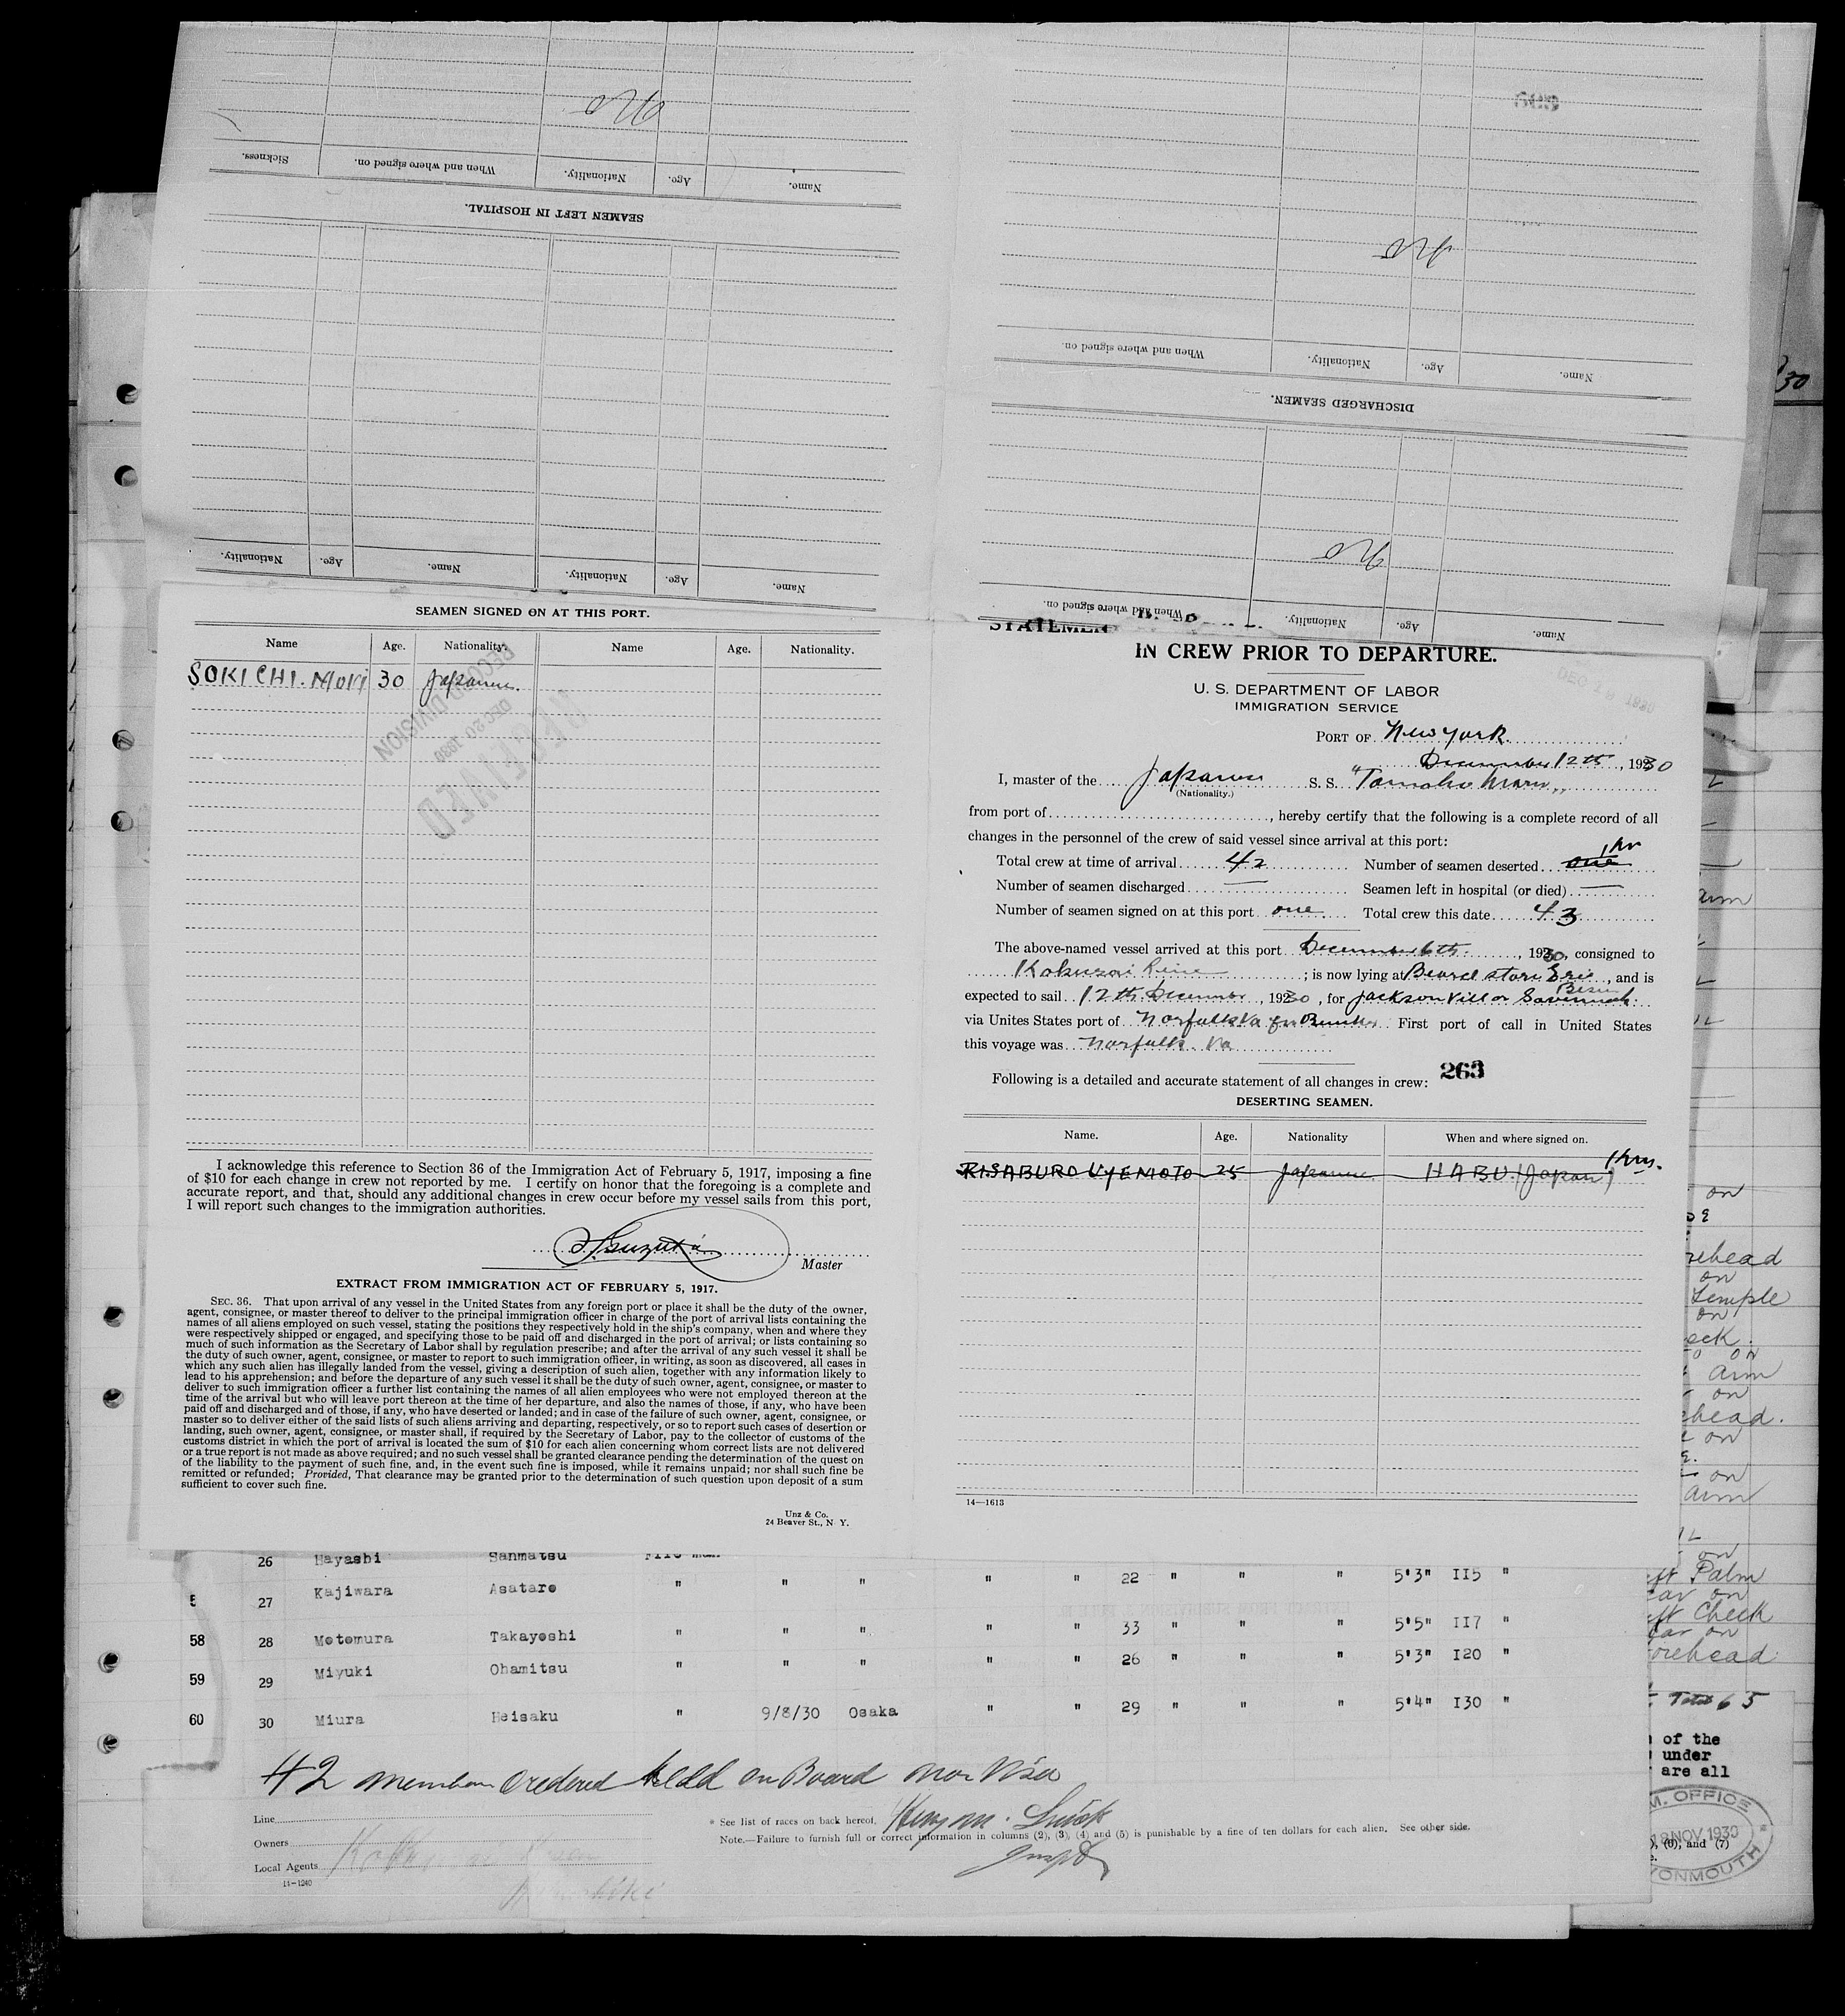 Sickness. When and where signed on. Nationality. Age. Name.
SEAMEN LEFT IN HOSPITAL.
Nationality. Age. Name. Nationality. Age. Name.
When and where signed on. Nationality. Age. Name.
DISCHARGED SEAMEN.
When and where signed on. Nationality. Age. Name.
30
SEAMEN SIGNED ON AT THIS PORT.
Name Age. Nationality. Name Age. Nationality.
SOKICHI. MORI 30 Japanese.
RECEIVED
DEC 20 1930
RECORD DIVISION
I acknowledge this reference to Section 36 of the Immigration Act of February 5, 1917, imposing a fine
of $10 for each change in crew not reported by me. I certify on honor that the foregoing is a complete and
accurate report, and that, should any additional changes in crew occur before my vessel sails from this port,
I will report such changes to the immigration authorities.
Master
EXTRACT FROM IMMIGRATION ACT OF FEBRUARY 5, 1917.
SEC. 36. That upon arrival of any vessel in the United States from any foreign port or place it shall be the duty of the owner,
agent, consignee, or master thereof to deliver to the principal immigration officer in charge of the port of arrival lists containing the
names of all aliens employed on such vessel, stating the positions they respectively hold in the ship's company, when and where they
were respectively shipped or engaged, and specifying those to be paid off and discharged in the port of arrival; or lists containing so
much of such information as the Secretary of Labor shall by regulation prescribe; and after the arrival of any such vessel it shall be
the duty of such owner, agent, consignee, or master to report to such immigration officer, in writing, as soon as discovered, all cases in
which any such alien has illegally landed from the vessel, giving a description of such alien, together with any information likely to
lead to his apprehension; and before the departure of any such vessel it shall be the duty of such owner, agent, consignee, or master to
deliver to such immigration officer a further list containing the names of all alien employees who were not employed thereon at the
time of the arrival but who will leave port thereon at the time of her departure, and also the names of those, if any, who have been
paid off and discharged and of those, if any, who have deserted or landed; and in case of the failure of such owner, agent, consignee, or
master so to deliver either of the said lists of such aliens arriving and departing, respectively, or so to report such cases of desertion or
landing, such owner, agent, consignee, or master shall, if required by the Secretary of Labor, pay to the collector of customs of the
customs district in which the port of arrival is located the sum of $10 for each alien concerning whom correct lists are not delivered
or a true report is not made as above required; and no such vessel shall be granted clearance pending the determination of the quest on
of the liability to the payment of such fine, and, in the event such fine is imposed, while it remains unpaid; nor shall such fine be
remitted or refunded; Provided, That clearance may be granted prior to the determination of such question upon deposit of a sum
sufficient to cover such fine.
Unz & Co.
24 Beaver St., N. Y.
IN CREW PRIOR TO DEPARTURE.
U. S. DEPARTMENT OF LABOR
IMMIGRATION SERVICE
PORT OF New York
December 12th, 1930
I, master of the Japanese S. S.
(Nationality.)
from port of, hereby certify that the following is a complete record of all
changes in the personnel of the crew of said vessel since arrival at this port:
Total crew at time of arrival 42 Number of seamen deserted one
Number of seamen discharged — Seamen left in hospital (or died) —
Number of seamen signed on at this port one Total crew this date 43
The above-named vessel arrived at this port December 6th, 1930, consigned to
Line; is now lying at Erie Basin, and is
expected to sail 12th December, 1930, for Jacksonvill or Savannah
via Unites States port of Norfolk Va for Bunker First port of call in United States
this voyage was Norfolk. Va
Following is a detailed and accurate statement of all changes in crew: 263
DESERTING SEAMEN.
Name. Age. Nationality When and where signed on.
RISABURO UYEMOTO 25 Japanese HABU. (Japan)
14—1613
26 Hayashi Sanmatsu Fire man
27 Kajiwara Asataro " " " " " 22 " " " 5'3" 115 "
58 28 Motomura Takayoshi " " " " " 33 " " " 5'5" 117 "
59 29 Miyuki Ohamitsu " " " " " 26 " " " 5'3" 120 "
60 30 Miura Heisaku " 9/8/30 Osaka " " 29 " " " 5'4" 130 "
42 members ordered held on Board
Line
Owners
Local Agents
11—1240
* See list of races on back hereof.
Note.—Failure to furnish full or correct information in columns (2), (3), (4) and (5) is punishable by a fine of ten dollars for each alien. See other side.
arm
on
on
Temple
on
on
arm
on
on
on
arm
on
Palm
on
Cheek
on
Total 65
of the
under
are all
M. OFFICE
NOV 1930
(6), and (7)